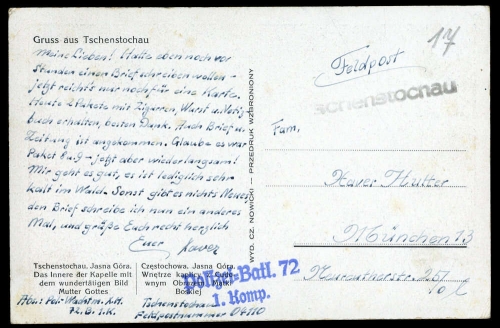 Gruss aus Tschenstochau
Meine Lieben! Hatte eben noch vor
Stunden einen Brief schreiben wollen -
jetzt reicht's nur noch für eine Karte.
Heute 2 Pakete mit Zigarren, Wurst u. Notiz
buch erhalten, besten Dank. Auch Brief u.
Zeitung ist angekommen. Glaube es war
Paket 8 u. 9 - jetzt aber wieder langsam!
Mir geht es gut, es ist lediglich sehr
kalt im Wald. Sonst gibt es nichts Neues,
den Brief schreibe ich nun ein anderes
Mal, und grüße Euch recht herzlich
Euer Xaver
Tschenstochau, Jasna Góra.
Das Innere der Kapelle mit
dem wundertätigen Bild
Mutter Gottes
Częstochowa, Jasna Góra.
Wnętrze kaplicy z Cudo-
wnym Obrazem Matki
Boskiej
Abs: Pol. Wachtm. X.H.
72. B. 1. K.
Tschenstochau
Feldpostnummer 04110
WYD. CZ. NOWICKI — PRZEDRUK WZBRONIONY
Polizei-Batl. 72
1. Komp.
17
Feldpost
schenstochau
Fam,
Xaver Hutter
München 13